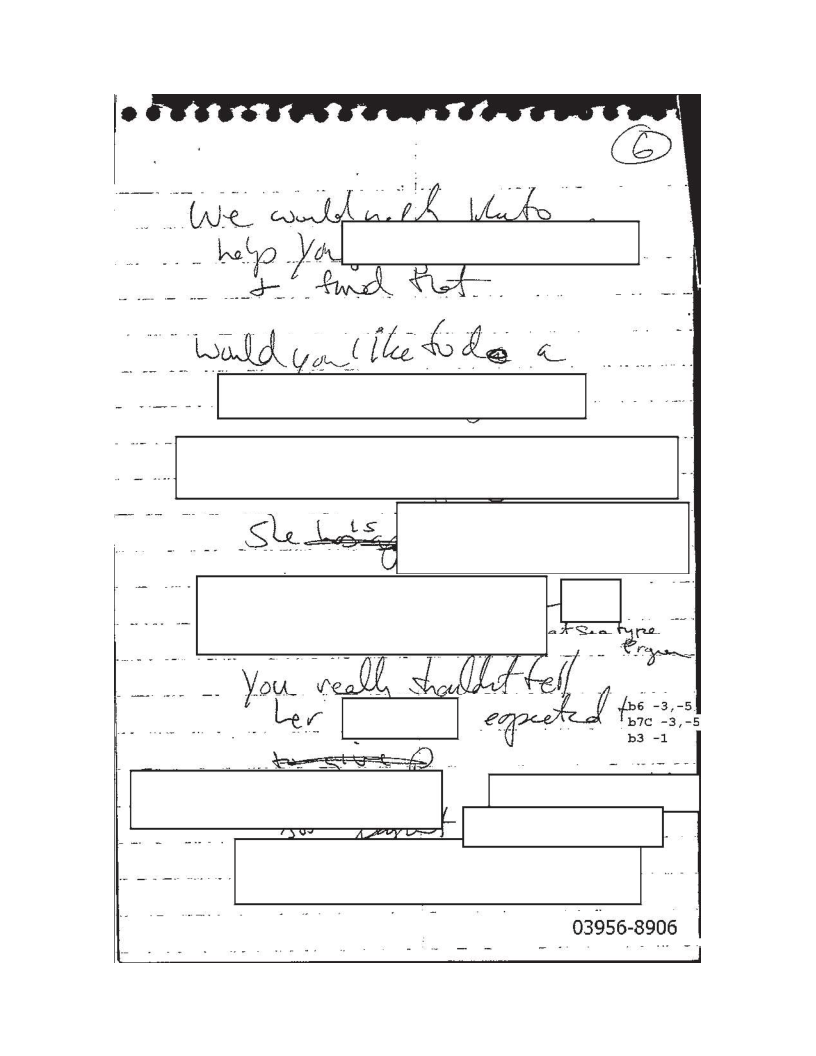 6
We would
help You
& find that
Would you like to do a
She is
at Sea type
Prgram
You really shouldn't tell
her expected t
b6 -3,-5
b7C -3,-5
b3 -1
to give
03956-8906